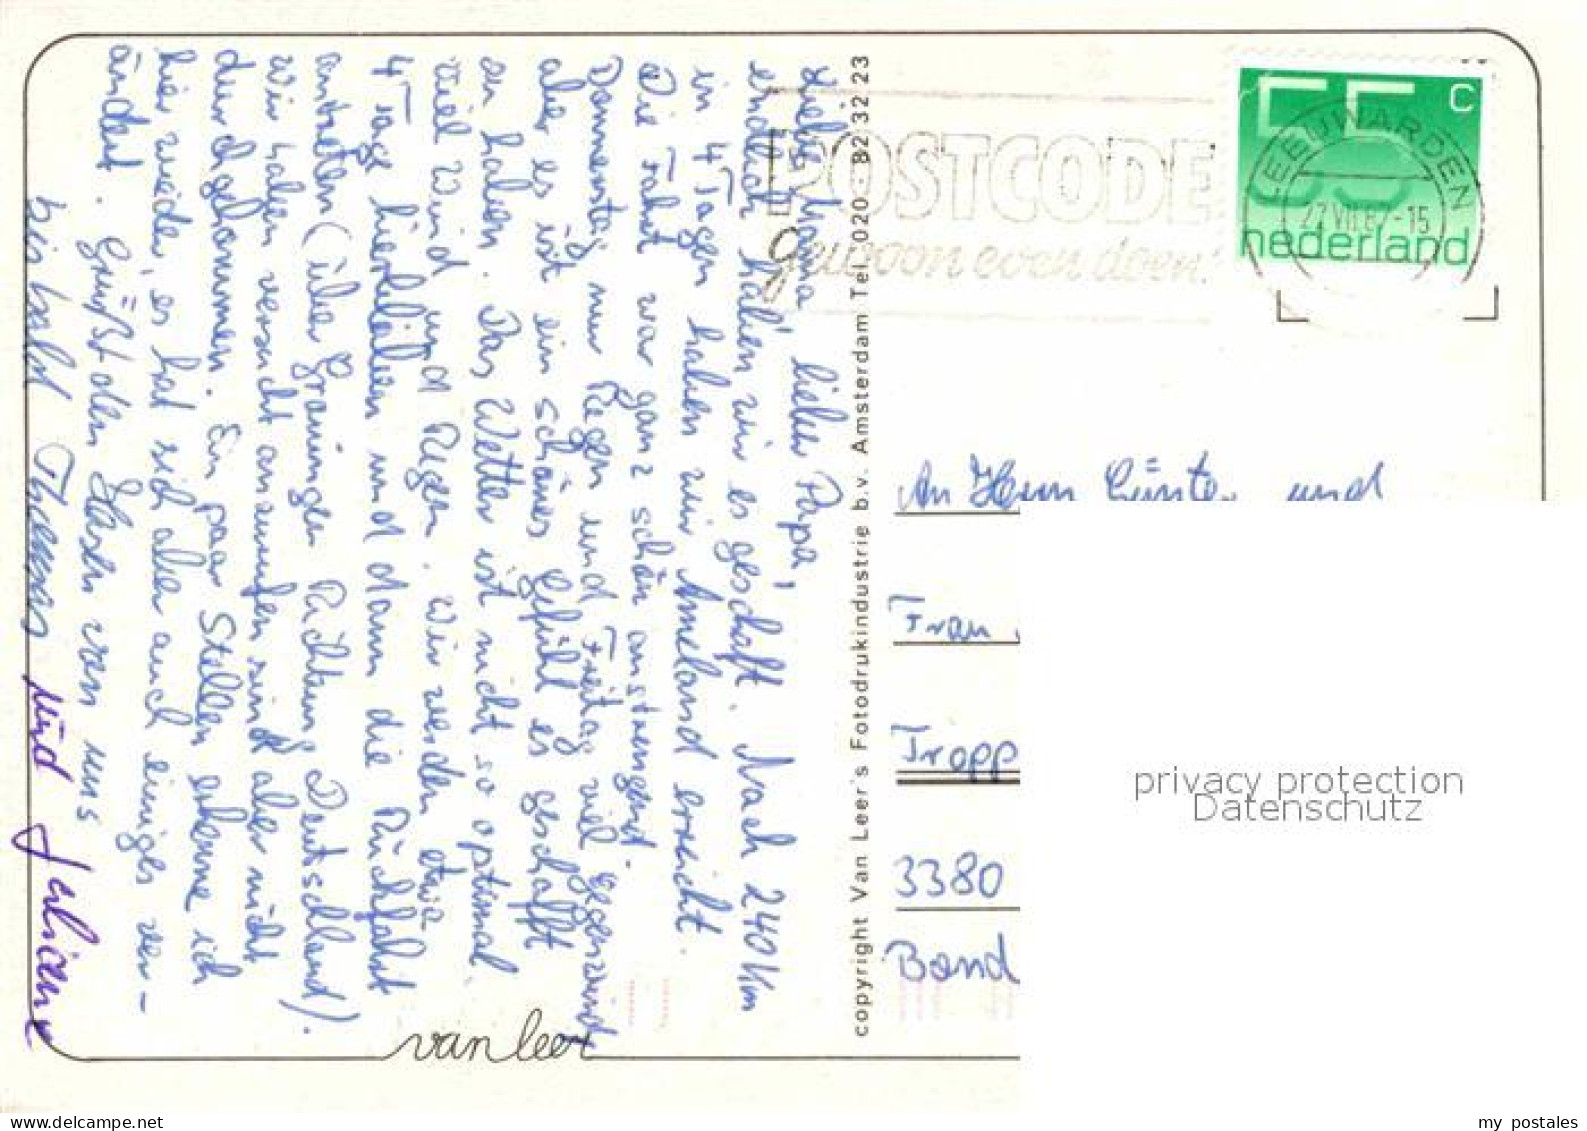 Liebe Mama, lieber Papa,
endlich haben wir es geschafft. Nach 240 km
in 4 Tagen haben wir Ameland erreicht.
Die Fahrt war ganz schön anstrengend.
Donnerstag nur Regen und Freitag viel Gegenwind
aber es ist ein schönes Gefühl es geschafft
zu haben. Das Wetter ist nicht so optimal.
viel Wind und Regen. Wir werden etwa
4 Tage hierbleiben und dann die Rückfahrt
antreten (über Groningen Richtung Deutschland).
Wir haben versucht anzurufen sind aber nicht
durchgekommen. Ein paar Stellen erkenne ich
hier wieder, es hat sich aber auch einiges ver-
ändert. Grüßt den Hasen von uns
bis bald Thomas und Juliane
van leer
copyright Van Leer's Fotodrukindustrie b.v. Amsterdam Tel. 020 - 82 32 23
POSTCODE
gewoon even doen!
55 c
nederland
LEEUWARDEN
27 VII.87-15
An Herrn Günter und
Frau
Tropp
3380
Band
privacy protection
Datenschutz
my postales